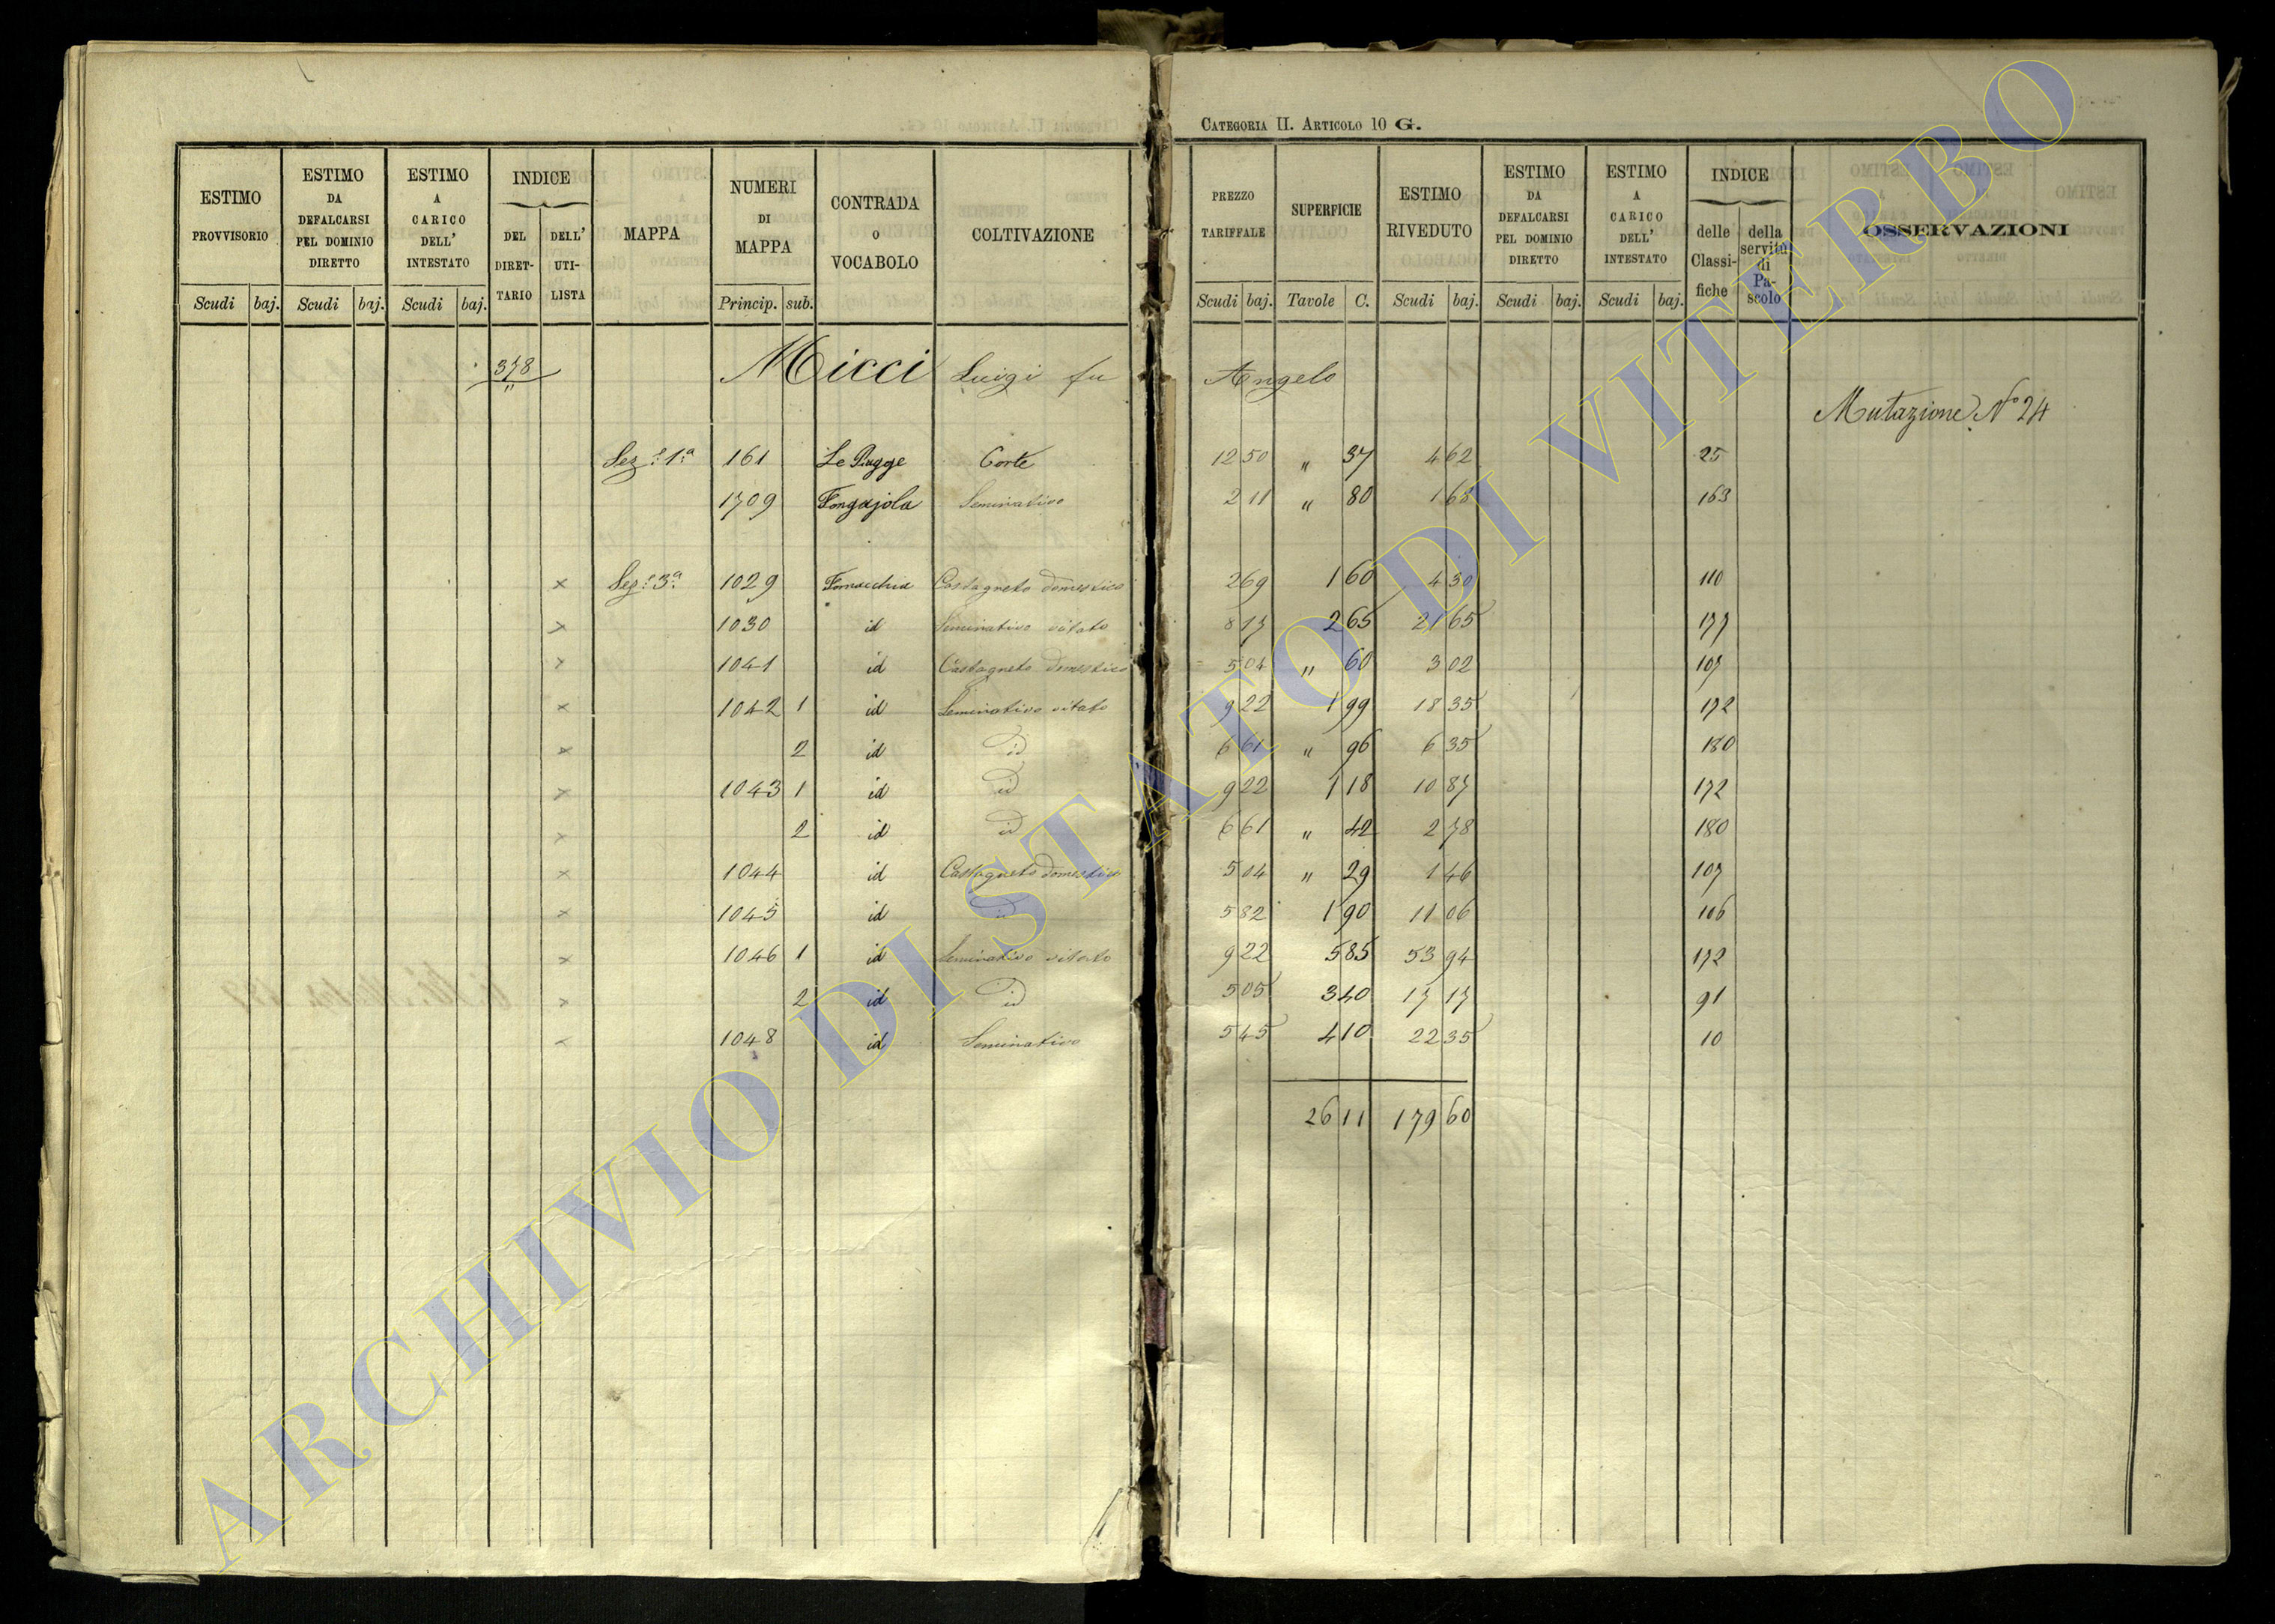 CATEGORIA II. ARTICOLO 10 G.
ESTIMO PROVVISORIO Scudi baj.
ESTIMO DA DEFALCARSI PEL DOMINIO DIRETTO Scudi baj.
ESTIMO A CARICO DELL' INTESTATO Scudi baj.
INDICE DEL DIRET-TARIO DELL' UTI-LISTA
MAPPA
NUMERI DI MAPPA Princip. sub.
CONTRADA o VOCABOLO
COLTIVAZIONE
PREZZO TARIFFALE Scudi baj.
SUPERFICIE Tavole C.
ESTIMO RIVEDUTO Scudi baj.
ESTIMO DA DEFALCARSI PEL DOMINIO DIRETTO Scudi baj.
ESTIMO A CARICO DELL' INTESTATO Scudi baj.
INDICE delle Classi-fiche della servitù di Pa-scolo
OSSERVAZIONI
378 Micci Luigi fu Angelo
Mutazione N° 24
Sez. 1ª 161 Le Piagge Corte 12 50 " 37 4 62 25
1709 Fongajola Seminativo 2 11 " 80 1 68 163
x Sez. 3ª 1029 Castagneto domestico 2 69 1 60 4 30 110
x 1030 id Seminativo vitato 8 17 2 65 21 65 177
x 1041 id Castagneto domestico 5 04 " 60 3 02 107
x 1042 1 id Seminativo vitato 9 22 1 99 18 35 172
x 2 id id 6 61 " 96 6 35 180
x 1043 1 id id 9 22 1 18 10 87 172
x 2 id id 6 61 " 42 2 78 180
x 1044 id Castagneto domestico 5 04 " 29 1 46 107
x 1045 id id 5 82 1 90 11 06 106
x 1046 1 id Seminativo vitato 9 22 5 85 53 94 172
x 2 id id 5 05 3 40 17 17 91
x 1048 id Seminativo 5 45 4 10 22 35 10
26 11 179 60
ARCHIVIO DI STATO DI VITERBO